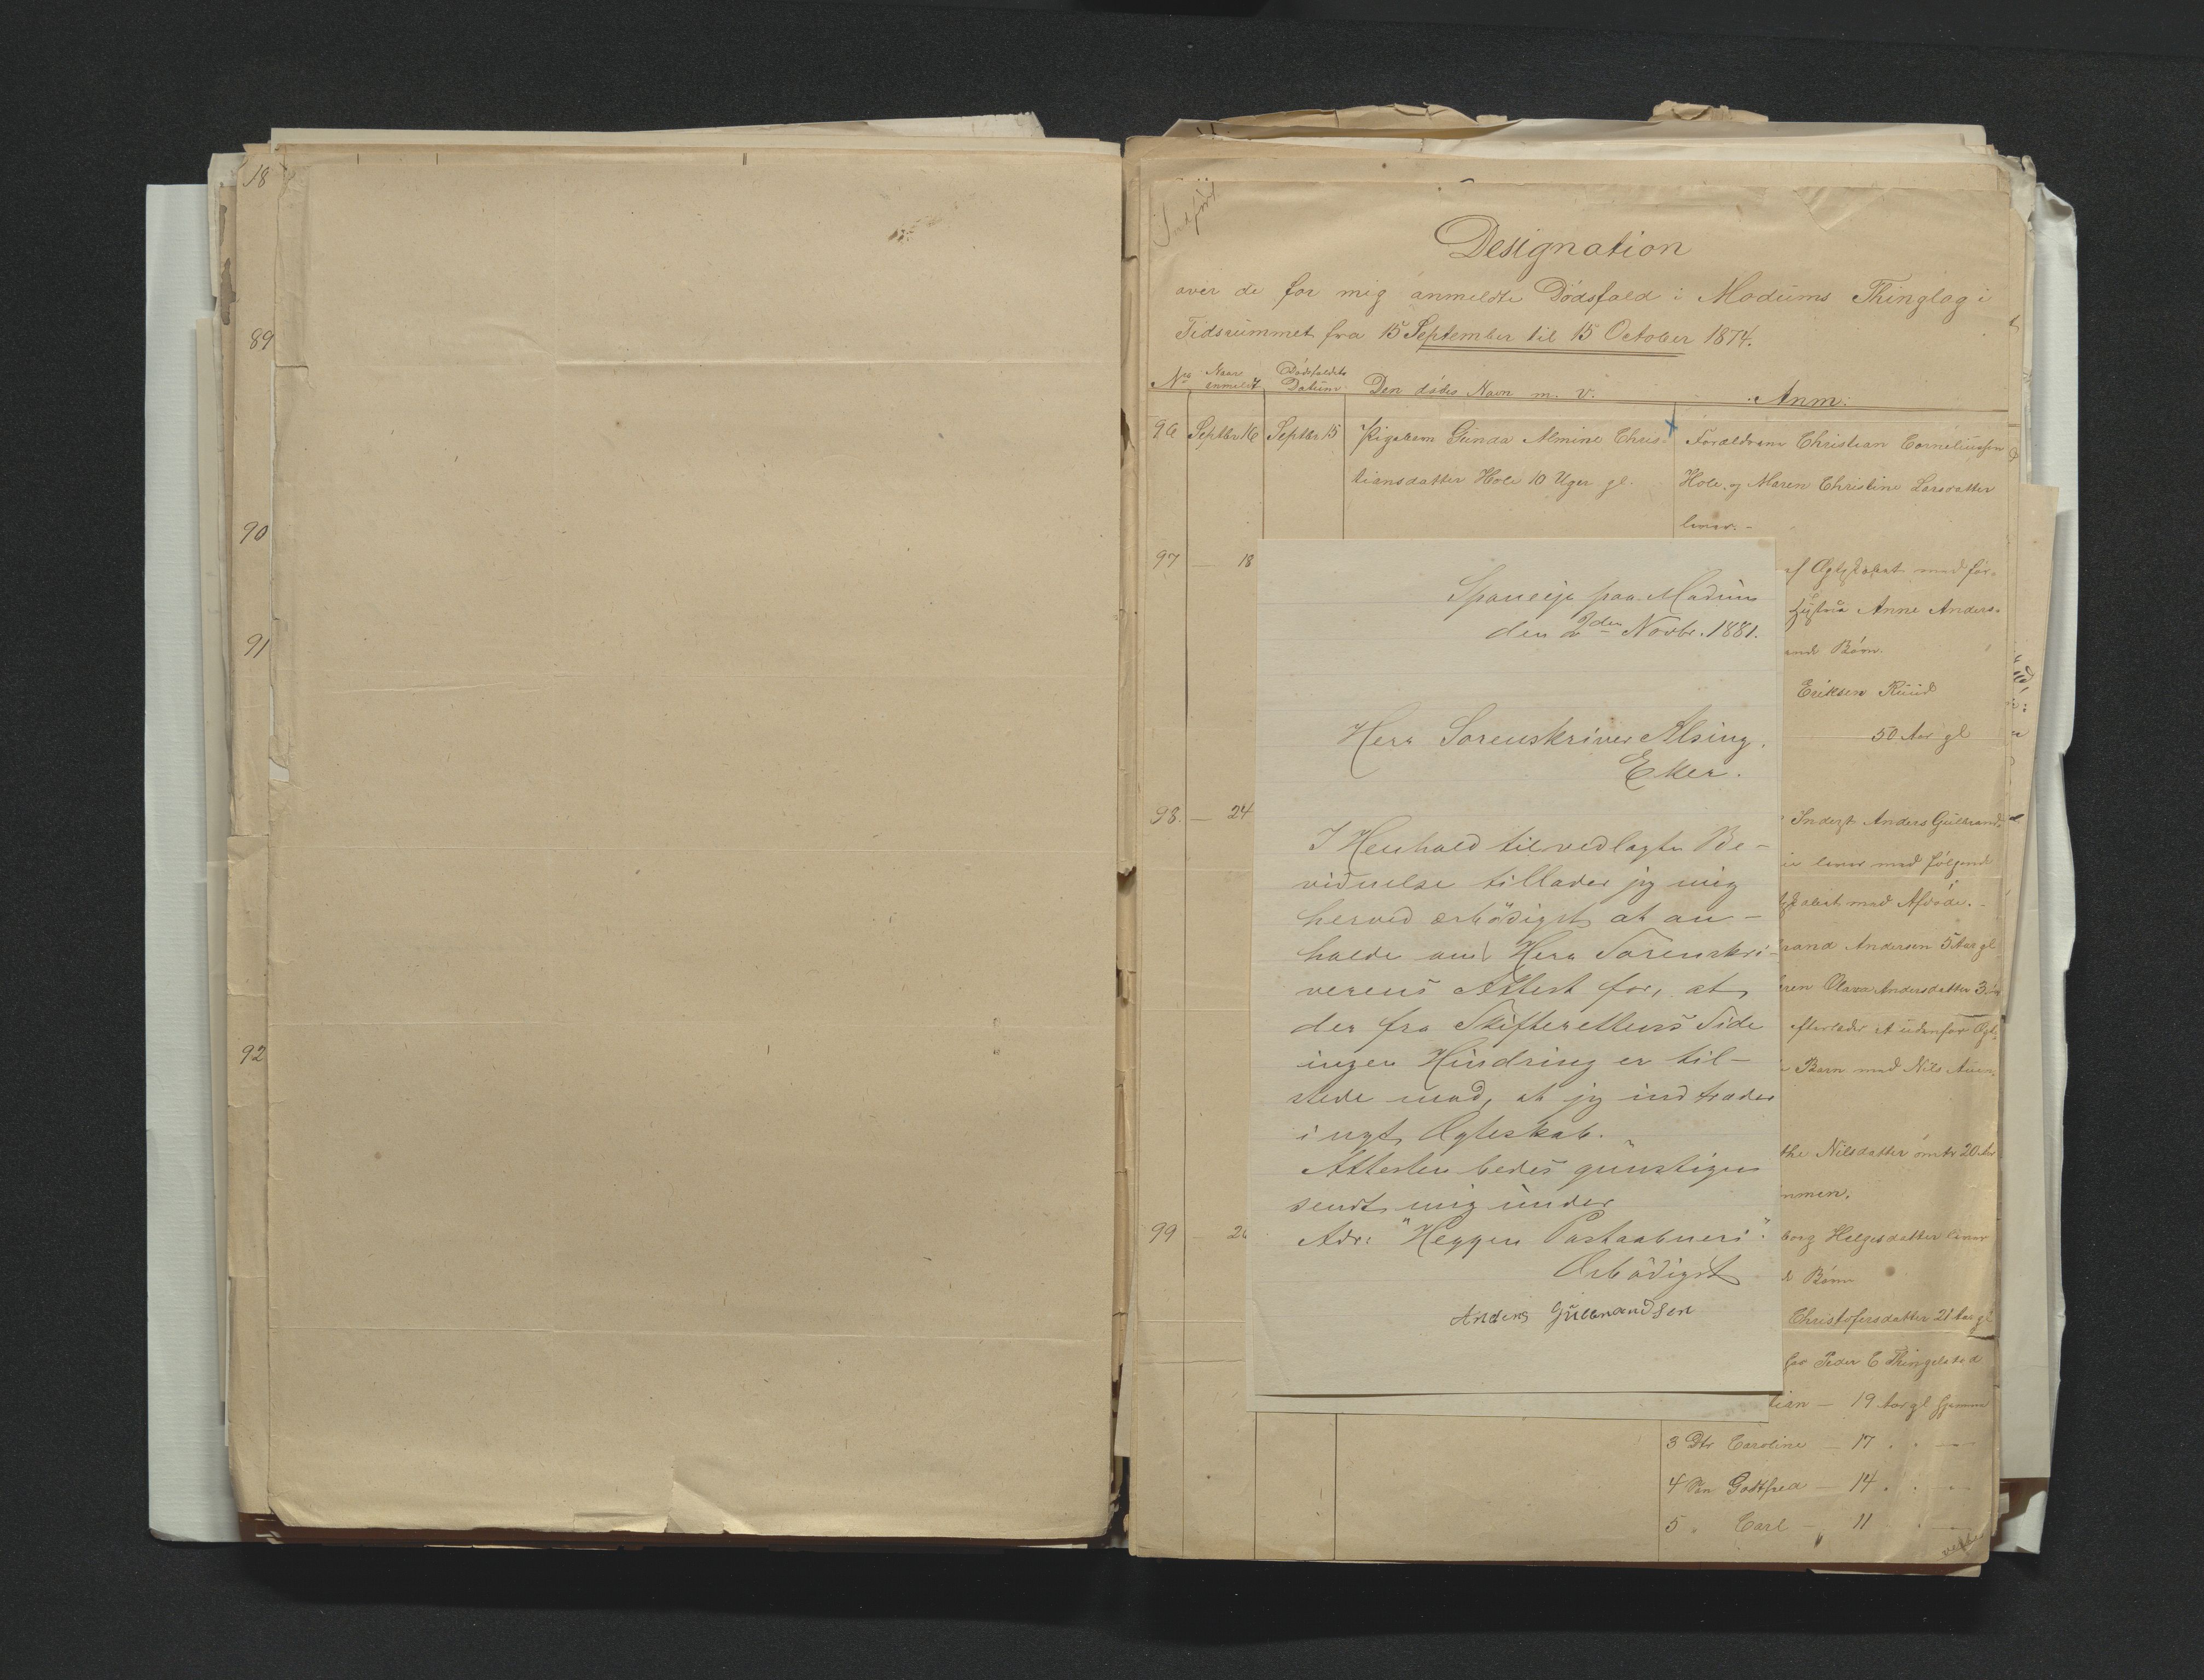 18
89
90
91
92
Indført
Designation
over de for mig anmeldte Dödsfald i Modums Thinglag i
Tidsrummet fra 15 September til 15 October 1874.
No Naar anmeldt Dödsfaldets Datum Den dödes Navn m. v. Anm:
96 Septbr 16 Septbr 15 Pigebarn Gunda Almine Chris- Forældrene Christian Corneliussen
tiansdatter Hole 10 Uger gl. Hole og Maren Christine Larsdatter
lever.-
97 — 18
Ægteskabet med
Anne Anders-
Börn.
Eriksen Ruud
50 Aar gl
98. — 24
Inderst Anders Gulbrand-
lever med fölgende
med Afdöde.-
Andersen 5 Aar gl
Olava Andersdatter 3
efterlader et udenfor Ægte
Barn med Nils
Nilsdatter omtr 20 Aar
99 — 26
Helgesdatter lever
Börn
Christofersdatter 21 Aar gl
Peder C Thingelstad
tian — 19 Aar gl hjemme
3 Dtr Caroline — 17 . . —
4 Sön Gottfred — 14 . . —
5 " Carl — " 11 . —
Spaneije paa Modum
den 2den Novbr. 1881.
Herr Sorenskriver Alsing.
Eker.
I Henhold til vedlagte Be-
vidnelse tillader jeg mig
herved ærbödigst at an-
holde om Herr Sorenskri-
verens Attest for, at
der fra Skifterettens Side
ingen Hindring er til-
stede mod, at jeg indtræder
i nyt Ægteskab.
Attesten bedes gunstigen
sendt mig under
Adr: "Heggen Postaabneri".
Ærbödigst
Anders Gulbrandsen